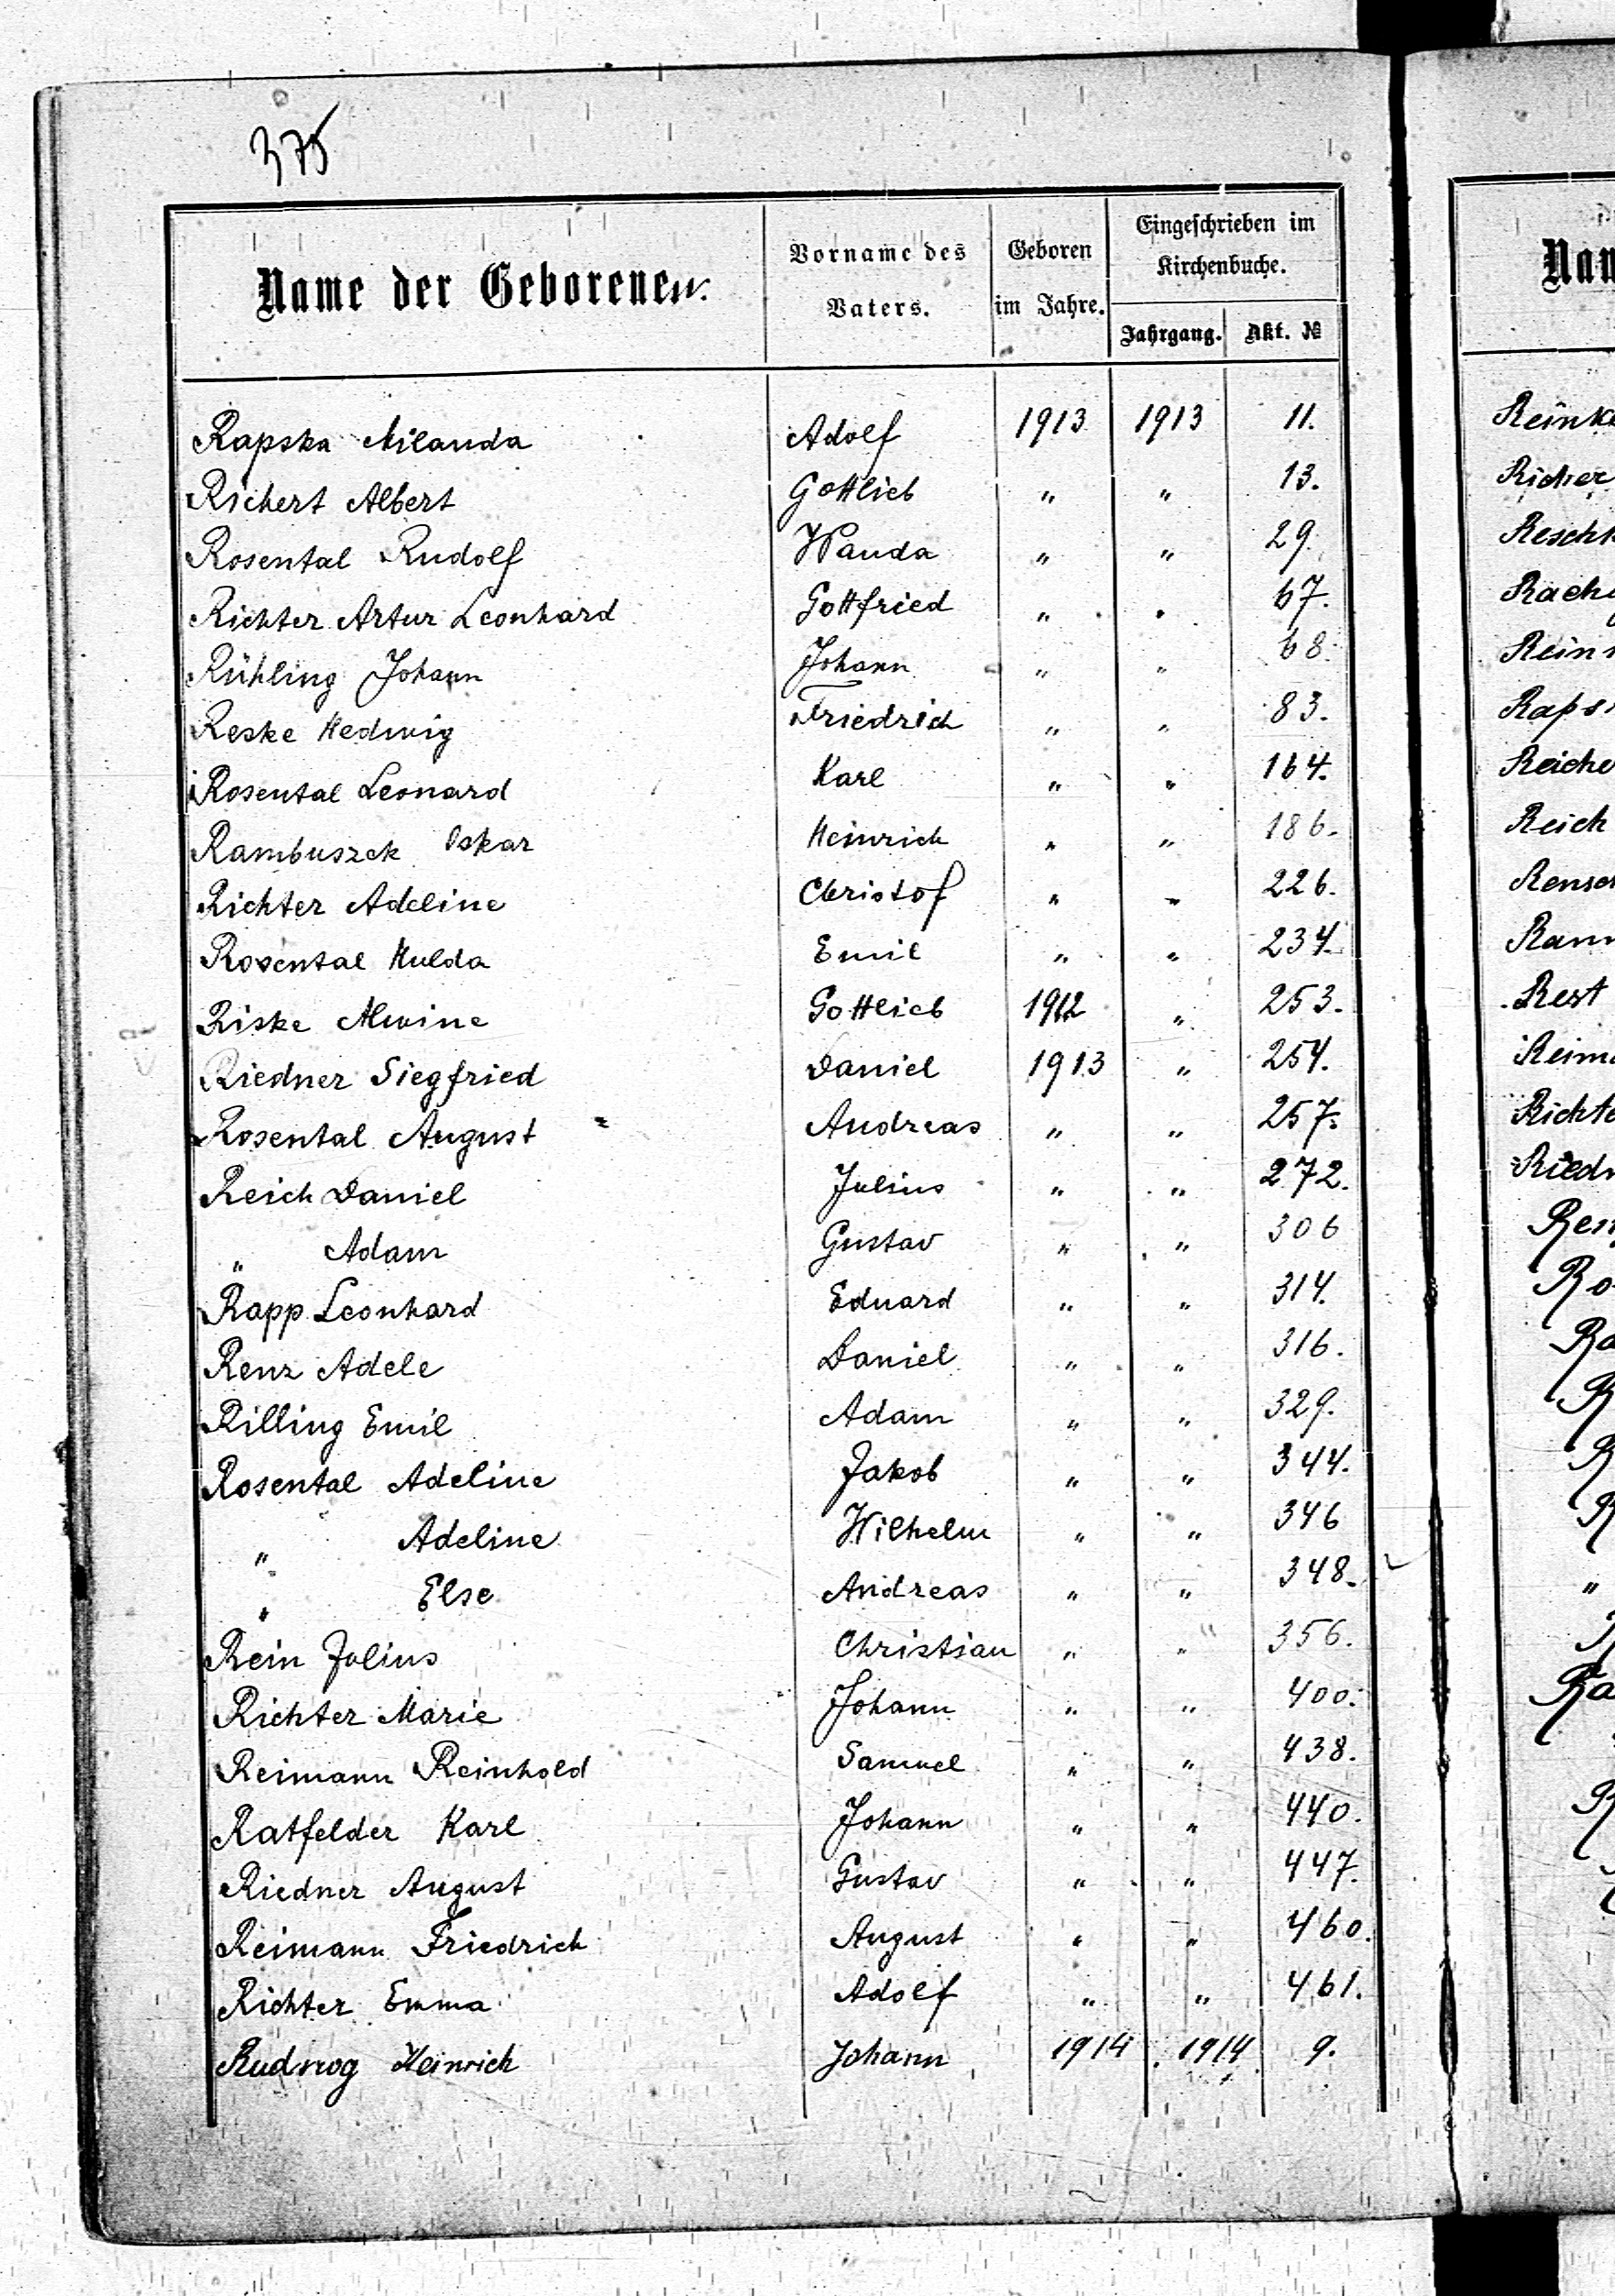 375
Name der Geborenen.
Vorname des Vaters.
Geboren im Jahre.
Eingeschrieben im Kirchenbuche.
Jahrgang. Akt. №
Rapska Milanda Adolf 1913 1913 11.
Richert Albert Gottlieb " " 13.
Rosental Rudolf Wanda " " 29.
Richter Artur Leonhard Gottfried " " 67.
Rühling Johann Johann " " 68.
Reske Hedwig Friedrich " " 83.
Rosental Leonard Karl " " 164.
Rambuszek Oskar Heinrich " " 186.
Richter Adeline Christof " " 226.
Rosental Hulda Emil " " 234.
Riske Alwine Gottlieb 1912 " 253.
Riedner Siegfried Daniel 1913 " 254.
Rosental August Andreas " " 257.
Reich Daniel Julius " " 272.
" Adam Gustav " " 306
Rapp Leonhard Eduard " " 314.
Renz Adele Daniel " " 316.
Rilling Emil Adam " " 329.
Rosental Adeline Jakob " " 344.
" Adeline Wilhelm " " 346
" Else Andreas " " 348.
Rein Julius Christian " " 356.
Richter Marie Johann " " 400.
Reimann Reinhold Samuel " " 438.
Ratfelder Karl Johann " " 440.
Riedner August Gustav " " 447.
Reimann Friedrich August " " 460.
Richter Emma Adolf " " 461.
Heinrich Johann 1914 1914 9.